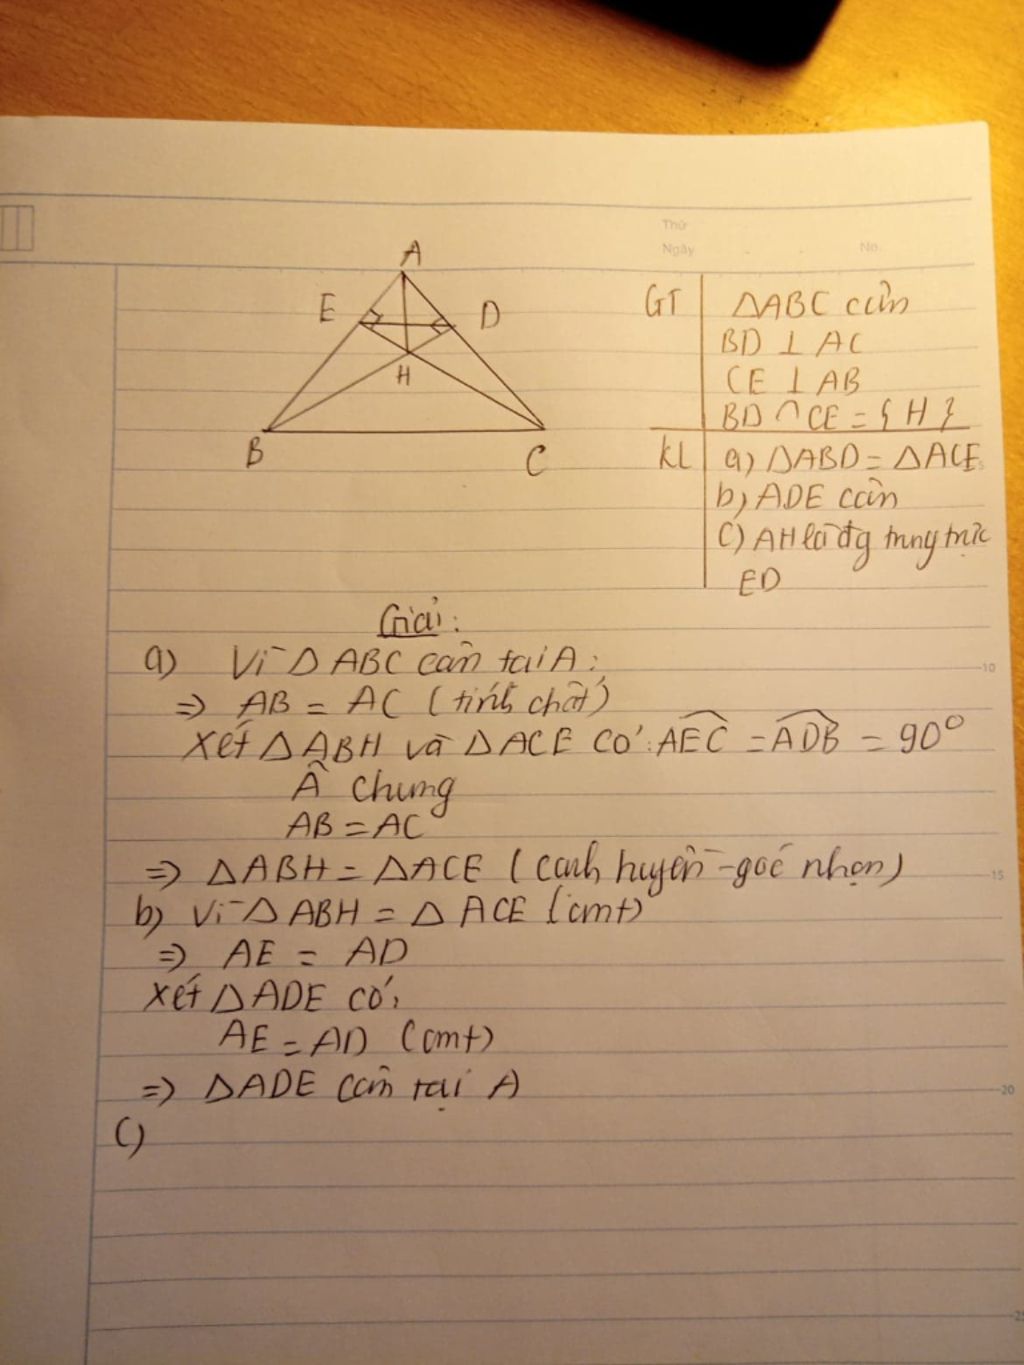 Thứ
Ngày
No.
A
E
D
H
B
C
GT
ΔABC cân
BD ⊥ AC
CE ⊥ AB
BD ∩ CE = { H }
KL
a) ΔABD = ΔACE
b) ADE cân
C) AH là đg trung trực
ED
Giải:
a) Vì Δ ABC cân tại A:
=> AB = AC (tính chất)
Xét ΔABH và ΔACE có: AEC = ADB = 90°
Â chung
AB = AC
=> ΔABH = ΔACE (cạnh huyền - góc nhọn)
b) Vì Δ ABH = Δ ACE (cmt)
=> AE = AD
Xét ΔADE có:
AE = AD (cmt)
=> ΔADE cân tại A
C)
10
15
20